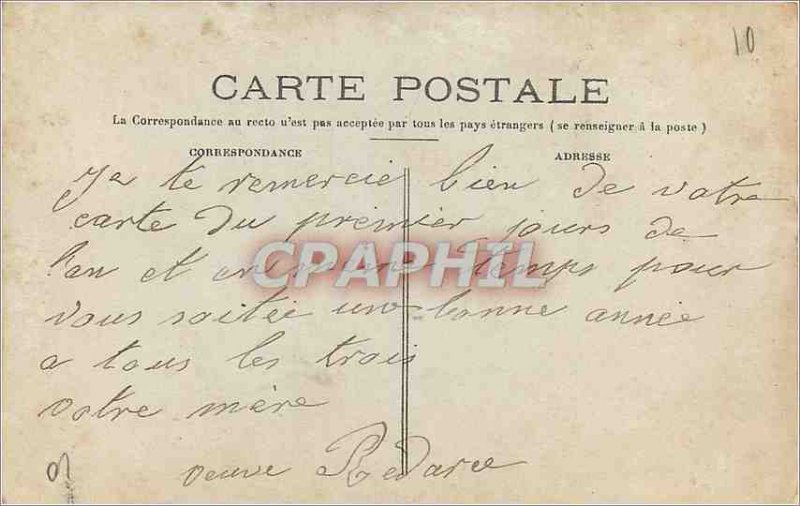 10
CARTE POSTALE
La Correspondance au recto n'est pas acceptée par tous les pays étrangers (se renseigner à la poste)
CORRESPONDANCE ADRESSE
Je te remercie bien de votre
carte du premier jours de
l'an et en même temps pour
vous saitée une bonne année
a tous les trois
votre mère
veuve Redarce
CPAPHIL